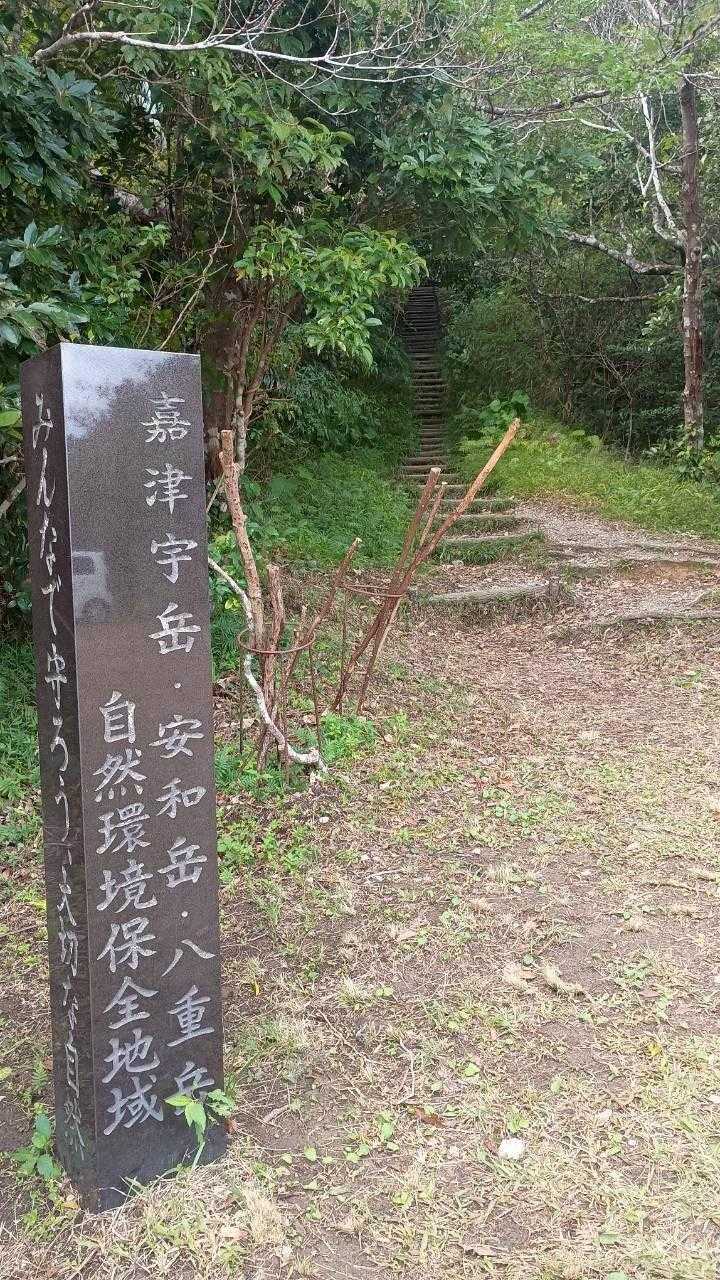 嘉津宇岳・安和岳・八重岳
自然環境保全地域
みんなで守ろう大切な自然